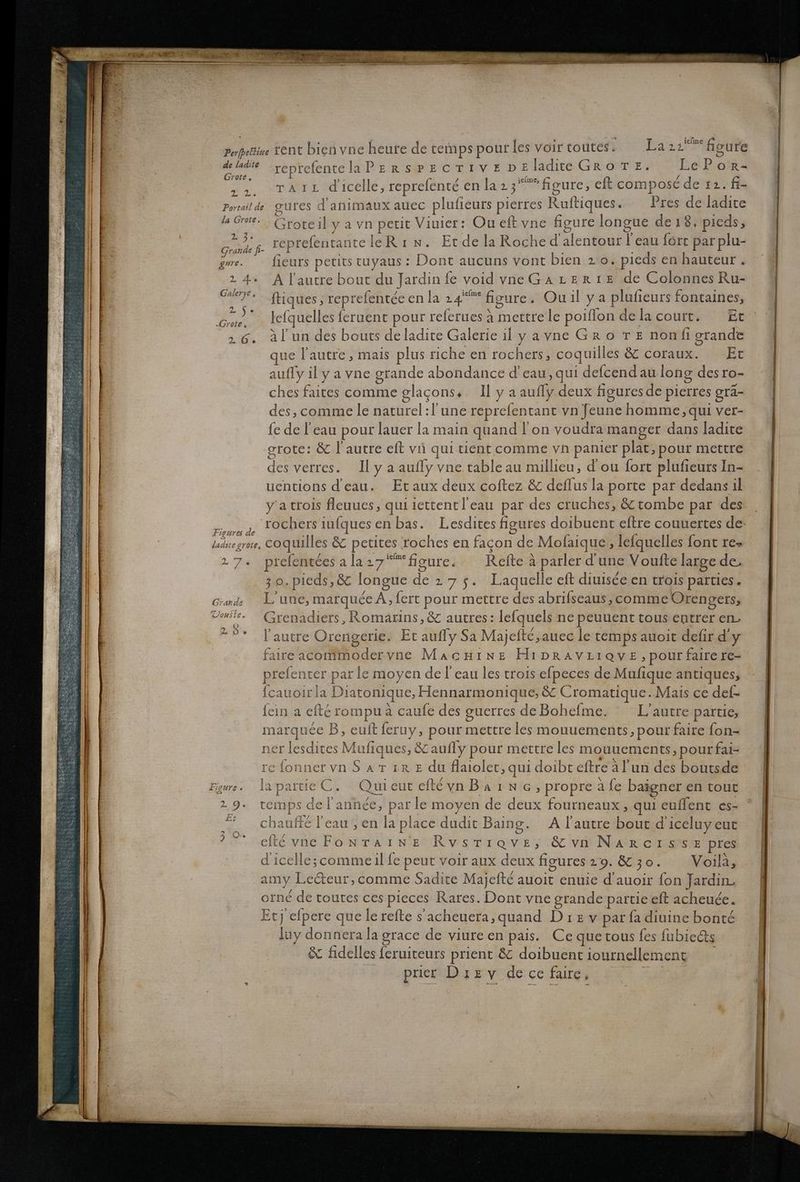 Perſpectiue rent bien vne heure de temps pour les voir toutes. La 22ieſme figure
de ladite repreſente la PERSPECTIVE DE ladite GROTE. Le POR-
Grote.
22. TAIL d'icelle, repreſenté en la 23ieſme figure, eſt composé de 12. fi-
Portail de gures d'animaux auec pluſieurs pierres Ruſtiques. Pres de ladite
la Grote. Grote il y a vn petit Viuier: Ou eſt vne figure longue de 18. pieds,
23.
Grande fi- repreſentante le RIN. Et de la Roche d'alentour l'eau ſort par plu-
gure. ſieurs petits tuyaus: Dont aucuns vont bien 20. pieds en hauteur.
24. A l'autre bout du Jardin ſe void vne GALERIE de Colonnes Ru-
Galerye. ſtiques, repreſentée en la 24ieſme figure. Ou il y a pluſieurs fontaines,
25.
Grote. leſquelles ſeruent pour reſerues à mettre le poiſſon de la court. Et
26. à l'un des bouts de ladite Galerie il y a vne GROTE non ſi grande
que l'autre, mais plus riche en rochers, coquilles & coraux. Et
auſſy il y a vne grande abondance d'eau, qui deſcend au long des ro-
ches faites comme glaçons. Il y a auſſy deux figures de pierres grā-
des, comme le naturel: l'une repreſentant vn Jeune homme, qui ver-
ſe de l'eau pour lauer la main quand l'on voudra manger dans ladite
grote: & l'autre eſt vn qui tient comme vn panier plat, pour mettre
des verres. Il y a auſſy vne table au millieu, d'ou ſort pluſieurs In-
uentions d'eau. Et aux deux coſtez & deſſus la porte par dedans il
y a trois fleuues, qui iettent l'eau par des cruches, & tombe par des
Figures de rochers iuſques en bas. Lesdites figures doibuent eſtre couuertes de
ladite grote, coquilles & petites roches en façon de Moſaique, leſquelles ſont re-
27. preſentées a la 27ieſme figure. Reſte à parler d'une Vouſte large de
30. pieds, & longue de 275. Laquelle eſt diuisée en trois parties.
Grande L'une, marquée A, ſert pour mettre des abriſseaus, comme Orengers,
Vouſte. Grenadiers, Romarins, & autres: leſquels ne peuuent tous entrer en
28. l'autre Orengerie. Et auſſy Sa Majeſté, auec le temps auoit deſir d'y
faire acommoder vne MACHINE HIDRAVLIQVE, pour faire re-
preſenter par le moyen de l'eau les trois eſpeces de Muſique antiques,
ſcauoir la Diatonique, Hennarmonique, & Cromatique. Mais ce deſ-
ſein a eſté rompu à cauſe des guerres de Boheſme. L'autre partie,
marquée B, euſt ſeruy, pour mettre les mouuements, pour faire ſon-
ner lesdites Muſiques, & auſſy pour mettre les mouuements, pour fai-
re ſonner vn SATIRE du flaiolet, qui doibt eſtre à l'un des bouts de
Figure. la partie C. Qui eut eſté vn BAING, propre à ſe baigner en tout
29. temps de l'année, par le moyen de deux fourneaux, qui euſſent es-
Et chauffé l'eau, en la place dudit Baing. A l'autre bout d'iceluy eut
30. eſté vne FONTAINE RVSTIQVE, & vn NARCISSE pres
d'icelle; comme il ſe peut voir aux deux figures 29. & 30. Voilà,
amy Lecteur, comme Sadite Majeſté auoit enuie d'auoir ſon Jardin
orné de toutes ces pieces Rares. Dont vne grande partie eſt acheuée.
Et j'eſpere que le reſte s'acheuera, quand DIEV par ſa diuine bonté
luy donnera la grace de viure en pais. Ce que tous ſes ſubiects
& fidelles ſeruiteurs prient & doibuent iournellement
prier DIEV de ce faire,